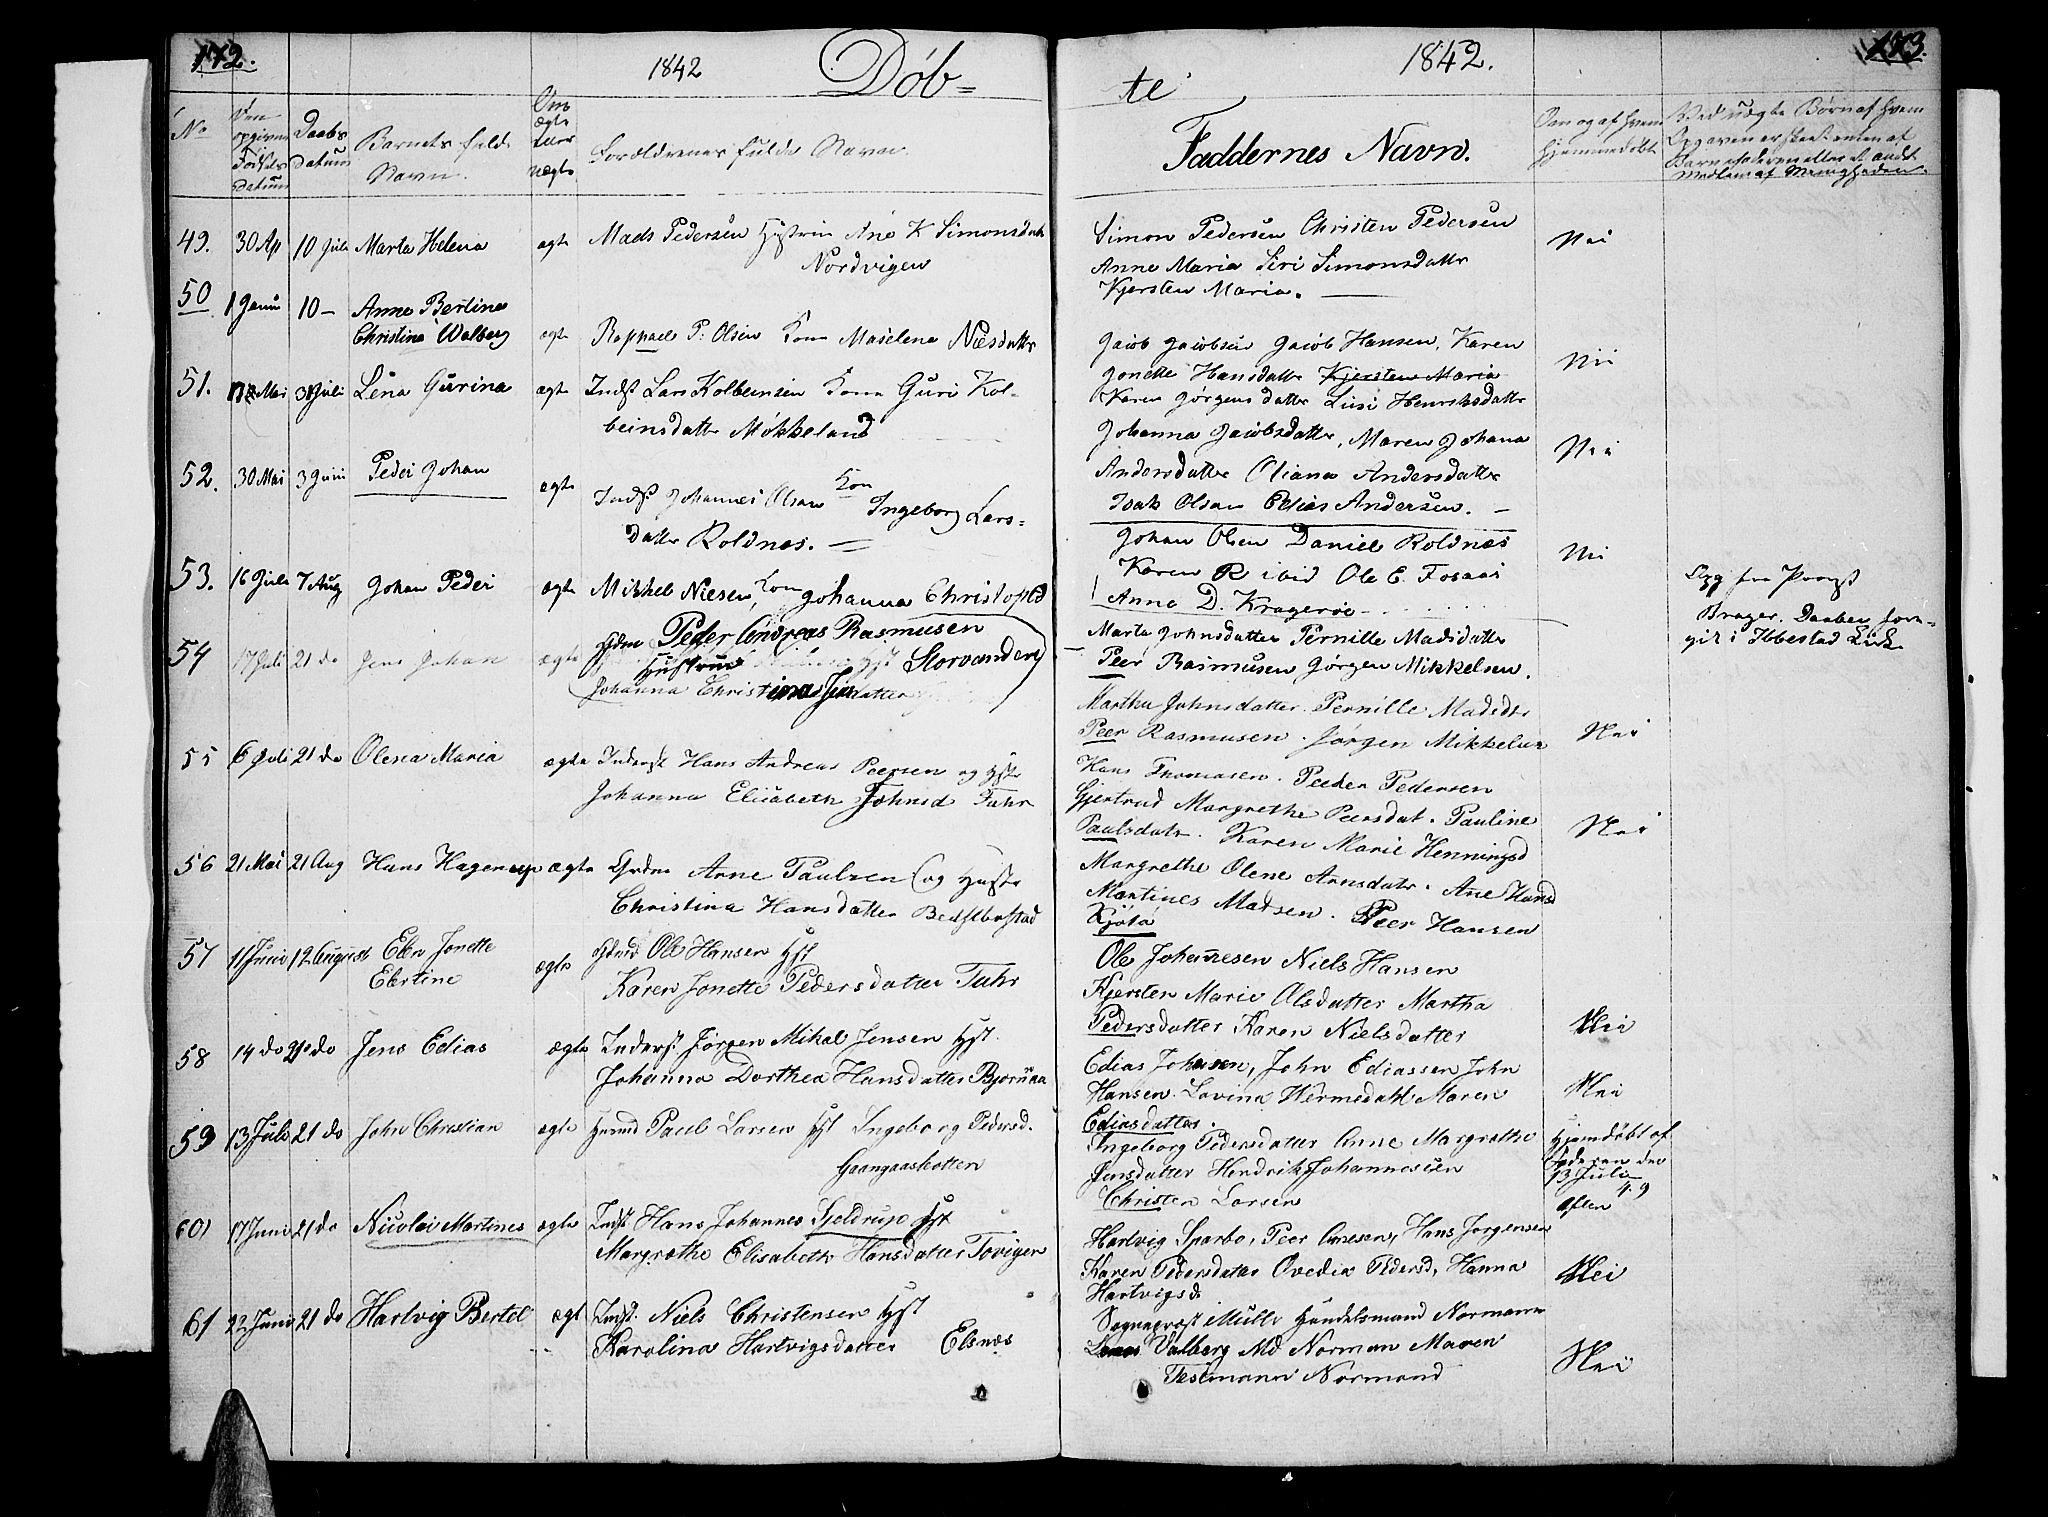 172.
1842
Døb=
No
Den opgivne Fødsels Datum
Daabs Datum
Barnets fulde Navn.
Om ægte eller uægte
Forældrenes fulde Navne.
49. 30 Ap 10 Juli Marta Helena ægte Mads Pedersen Hustrue Ane K Simonsdatr
Nordvigen
50 1 Januar 10 – Anne Bertine
Christina Walberg ægte Raphael P. Olsen Kone Maselena Nilsdatter
51. Mai 31 Juli Lena Gurina ægte Indst Lars Kolbensen Kone Guri Kol-
beinsdatter Møkkeland
52. 30 Mai 3 Juni Peder Johan ægte Indst Johannes Olsen Kon Ingeborg Lars=
datter Roldnes.
53. 16 Juli 7 Aug Johan Peder ægte Mikkel Nilsen, Kone Johanna Christophd
54 17 Juli 21 do Jens Johan ægte Peder Andreas Rasmusen
Hustrue Storvanden
Johanna Christina Jensdatter
55 6 Juli 21 do Olena Maria ægte Inderst Hans Andreas Peersen og Hst
Johanna Elisabeth Johnsd Fuhr
56 21 Mai 21 Aug Hans Hagerup ægte Grdm Arne Paulsen og Hustr
Christina Hansdatter
57 11 Juni 12 August Elen Jonette
Elertine ægte Ole Hansen Hst
Karen Jonette Pedersdatter Fuhr
58 14 do 21 do Jens Edias ægte Inderst Jørgen Mikal Jensen Hst.
Johanna Dorthea Hansdatter Bjørnaa
59 13 Juli 21 do John Christian ægte Paul Larsen Hst Ingeborg Pedersd.
Gaangaasbotten
60 17 Juni 21 do Nicolai Martines ægte Indst Hans Johannes Hst
Margrethe Elisabeth Hansdatter Tovigen
61 22 Juni 21 do Hartvig Bertel ægt Indst. Niels Christensen Hst
Karolina Hartvigsdatter Elsnæs
173.
1842.
te
Faddernes Navn.
Om og af hvem hjemmedøbt
Ved uægte Børn af hvem
Opgaven er skeet enten af
Barnefaderen eller et andet
Medlem af Menigheden.
Simon Pedersen Christen Pedersen
Anne Maria Siri Simonsdatter
Kjersten Maria.
Nei
Jacob Jacobsen Jacob Hansen, Karen
Jonette Hansdatter Kjersten Maria
Karen Jørgensdatter Lusi Henriksdatter
Nei
Johanna Jacobsdatter, Maren Johana
Andersdatter Oliana Andersdatter
Isak Olsen Edias Andersen.
Nei
Johan Olsen Daniel Roldnæs
Karen R ibid Ole E. Fosaas
Anne D. Kragerøe
Nei
Opg fra Provst
Brager. Daaben fore-
git i Ibbestad Kirke
Marta Johnsdatter Pernille Madsdatter
Peer Rasmusen Jørgen Mikkelsen.
Martha Johnsdatter. Pernille Madsdtr
Peer Rasmusen. Jørgen Mikkelsen
Nei
Hans Thomasen. Peder Pedersen
Gjertrud Margrethe Peersdat. Pauline
Paulsdatr. Karen Marie Henningsd
Nei
Margrethe Olene Arnsdatr. Ane Hansd
Martines Matsen. Peer Hansen
Kjøtø
Ole Johannesen Niels Hansen
Kjersten Marie Olsdatter Martha
Pedersdatter Karen Nielsdatter
Nei
Edias Johnsen, John Ediassen John
Hansen. Lovina Hermedatt. Maren
Ediasdatter.
Nei
Ingeborg Pedersdatter Anne Margrethe
Jensdatter Hendrik Johannessen
Christen Larsen
Hjemdøbt af
Faderen den
13 Juli
Aften
Hartvig Sparbo, Peer Arnesen, Hans Jørgensen
Karen Pedersdatter Ovedia Pedersd, Hanna
Hartvigsd.
Nei
Sognepræst Müller Handelsmand Normann
Valberg Md Norman Maren
Testmann Normand
Nei